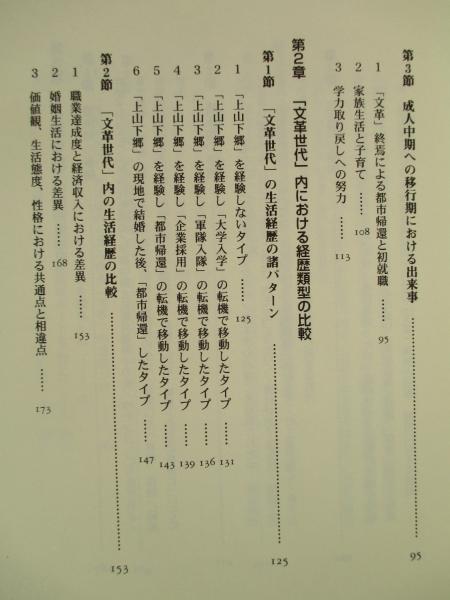 第3節 成人中期への移行期における出来事 …… 95
1 「文革」終焉による都市帰還と初就職 …… 95
2 家族生活と子育て …… 108
3 学力取り戻しへの努力 …… 113
第2章 「文革世代」内における経歴類型の比較
第1節 「文革世代」の生活経歴の諸パターン …… 125
1 「上山下郷」を経験しないタイプ …… 125
2 「上山下郷」を経験し「大学入学」の転機で移動したタイプ …… 131
3 「上山下郷」を経験し「軍隊入隊」の転機で移動したタイプ …… 136
4 「上山下郷」を経験し「企業採用」の転機で移動したタイプ …… 139
5 「上山下郷」を経験し「都市帰還」の転機で移動したタイプ …… 143
6 「上山下郷」の現地で結婚した後、「都市帰還」したタイプ …… 147
第2節 「文革世代」内の生活経歴の比較 …… 153
1 職業達成度と経済収入における差異 …… 153
2 婚姻生活における差異 …… 168
3 価値観、生活態度、性格における共通点と相違点 …… 173